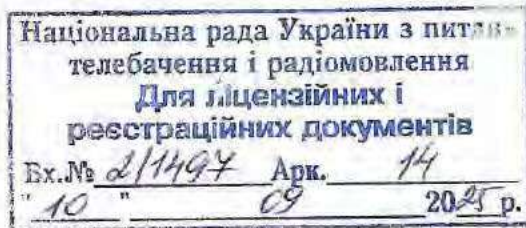 Національна рада України з питань
телебачення і радіомовлення
Для ліцензійних і
реєстраційних документів
Вх.№ 2/1497 Арк. 14
"10" 09 2025 р.